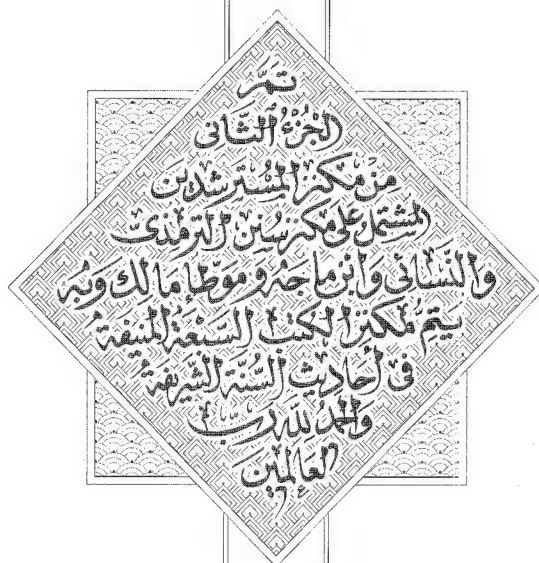 تمَّ
الجُزْءُ الثَّانى
مِنْ مكنز المُسْترشدين
المشتمل على مكنز سُنن الترمذى
والنَّسَائى وَابن ماجه وموطَّإ مَالك وَبه
يتمُّ مكنز الكتب السَّبعَة المنيفة
فى أحَاديث السُّنَّة الشَّريفة
والحمدُ للّه رَبّ
العَالمين